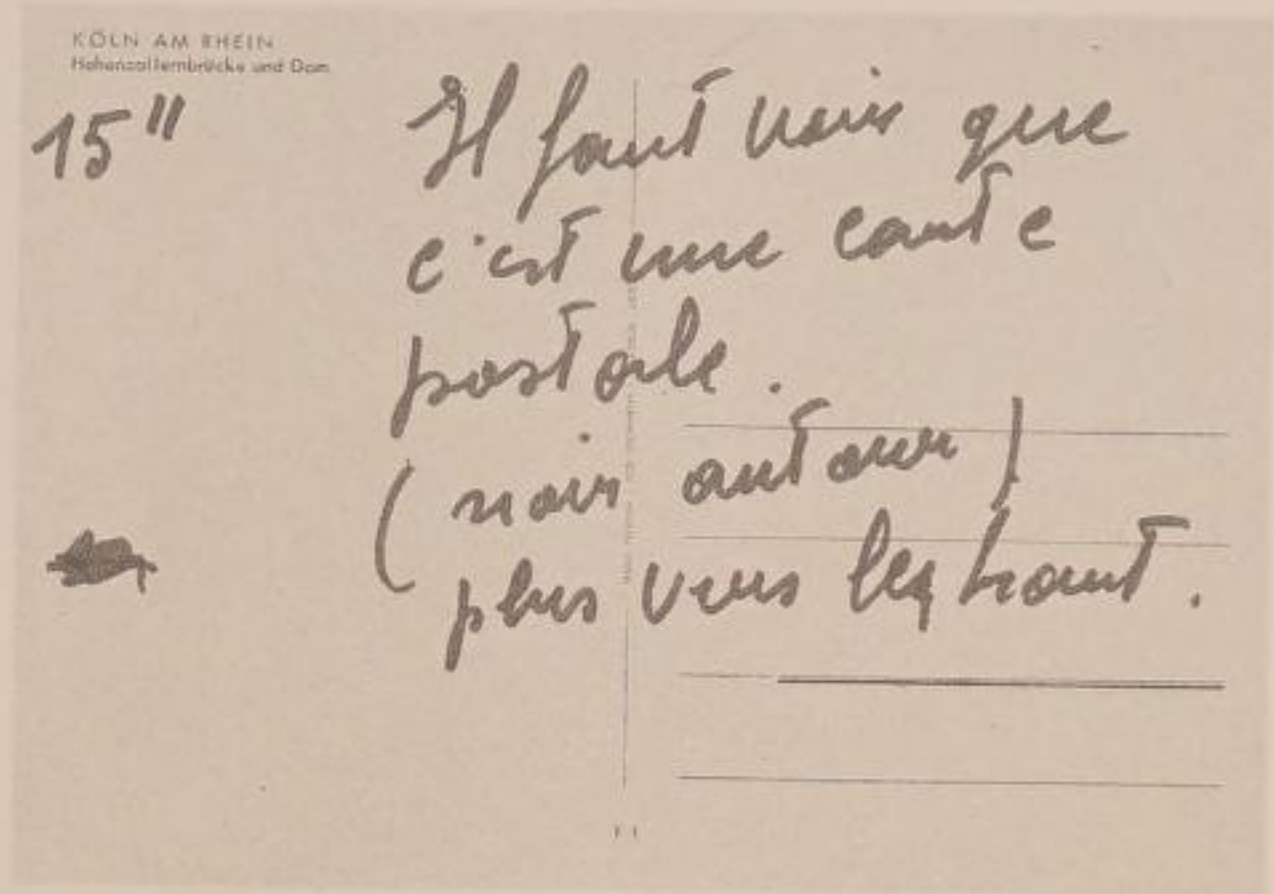 KÖLN AM RHEIN
Hohenzollernbrücke und Dom
15"
Il faut voir que
c'est une carte
postale.
(noir autour)
plus vers le haut.